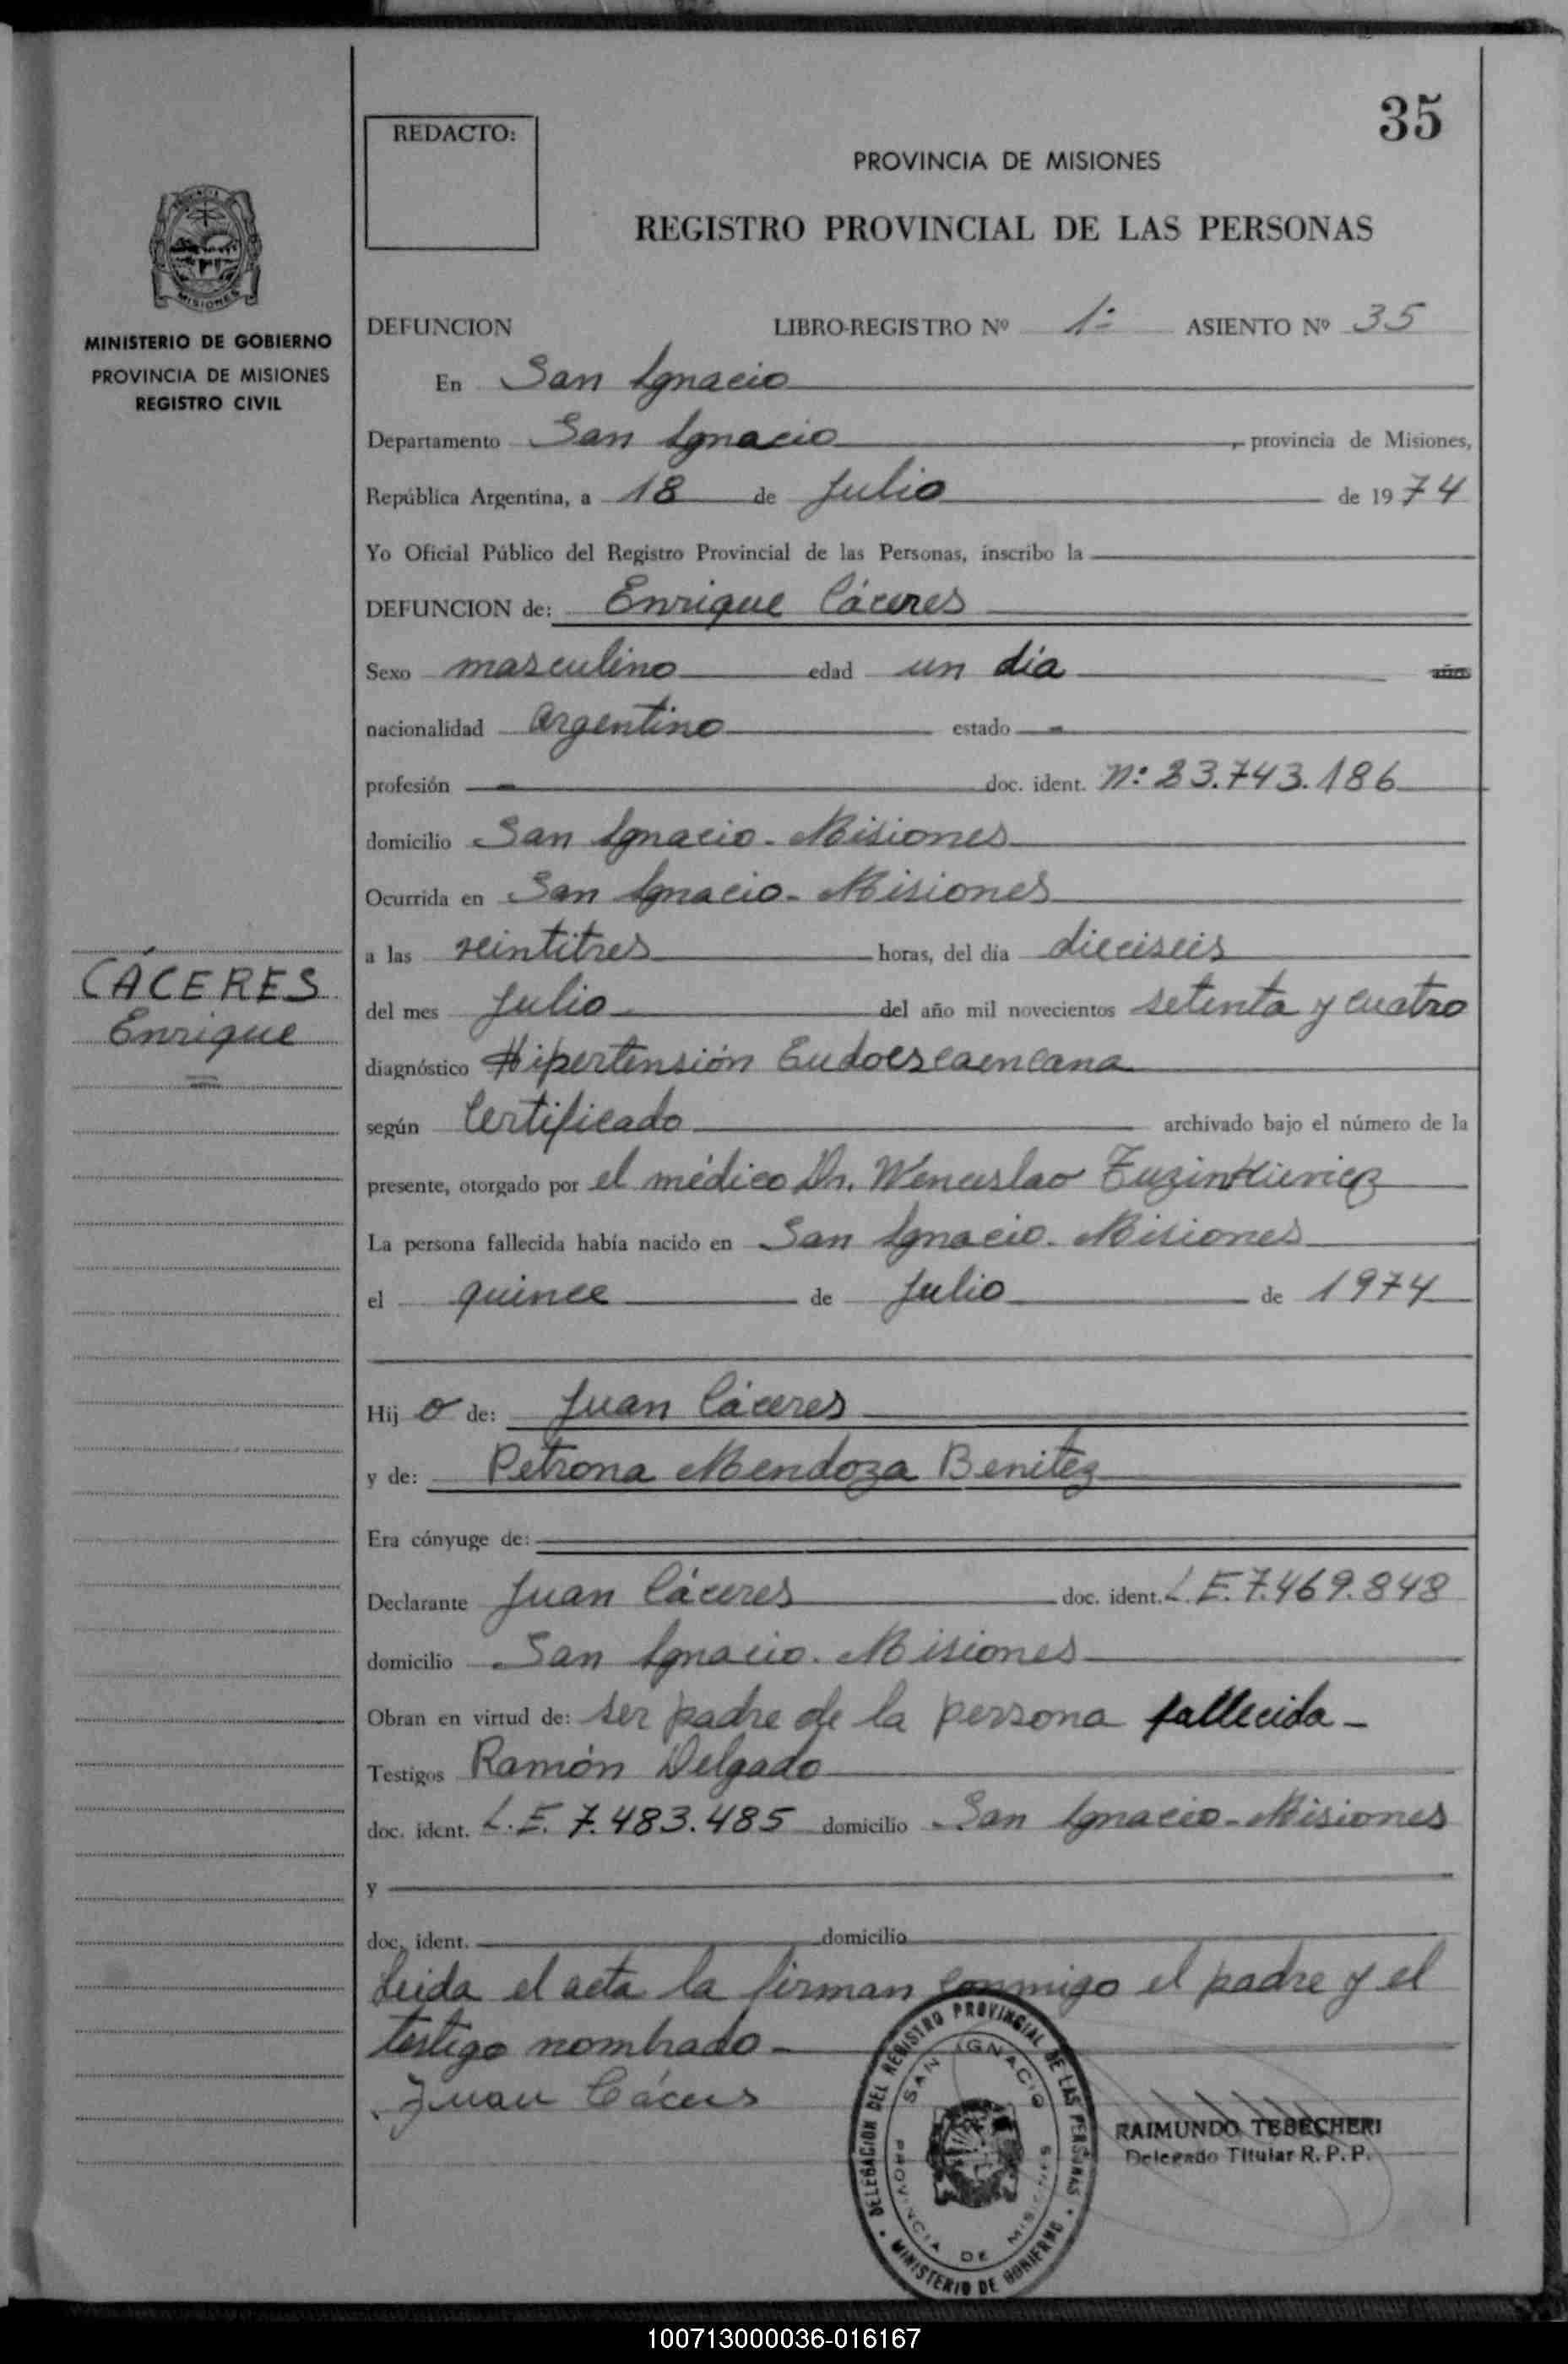 35
REDACTO:
PROVINCIA DE MISIONES
REGISTRO PROVINCIAL DE LAS PERSONAS
MISIONES
MINISTERIO DE GOBIERNO
PROVINCIA DE MISIONES
REGISTRO CIVIL
DEFUNCION LIBRO-REGISTRO Nº 1º ASIENTO Nº 35
En San Ignacio
Departamento San Ignacio, provincia de Misiones,
República Argentina, a 18 de Julio de 1974
Yo Oficial Público del Registro Provincial de las Personas, inscribo la
DEFUNCION de: Enrique Cáceres
Sexo masculino edad un día años
nacionalidad Argentino estado -
profesión - doc. ident. Nº 23.743.186
domicilio San Ignacio - Misiones
Ocurrida en San Ignacio - Misiones
a las veintitres horas, del día dieciseis
del mes Julio del año mil novecientos setenta y cuatro
CÁCERES
Enrique
diagnóstico Hipertensión
según Certificado archivado bajo el número de la
presente, otorgado por el médico Dr. Wenceslao
La persona fallecida había nacido en San Ignacio - Misiones
el quince de Julio de 1974
Hijo de: Juan Cáceres
y de: Petrona Mendoza Benitez
Era cónyuge de:
Declarante Juan Cáceres doc. ident. L.E. 7.469.848
domicilio San Ignacio - Misiones
Obran en virtud de: ser padre de la persona fallecida -
Testigos Ramón Delgado
doc. ident. L.E. 7.483.485 domicilio San Ignacio - Misiones
y
doc. ident. domicilio
Leida el acta la firman conmigo el padre y el
testigo nombrado -
Juan Cáceres
DELEGACION DEL REGISTRO PROVINCIAL DE LAS PERSONAS
MINISTERIO DE GOBIERNO
SAN IGNACIO
PROVINCIA DE MISIONES
RAIMUNDO TEBECHERI
Delegado Titular R. P. P.
100713000036-016167